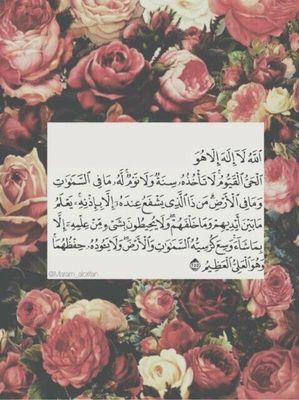 ٱللَّهُ لَآ إِلَٰهَ إِلَّا هُوَ
ٱلۡحَيُّ ٱلۡقَيُّومُۚ لَا تَأۡخُذُهُۥ سِنَةٞ وَلَا نَوۡمٞۚ لَّهُۥ مَا فِي ٱلسَّمَٰوَٰتِ
وَمَا فِي ٱلۡأَرۡضِۗ مَن ذَا ٱلَّذِي يَشۡفَعُ عِندَهُۥٓ إِلَّا بِإِذۡنِهِۦۚ يَعۡلَمُ
مَا بَيۡنَ أَيۡدِيهِمۡ وَمَا خَلۡفَهُمۡۖ وَلَا يُحِيطُونَ بِشَيۡءٖ مِّنۡ عِلۡمِهِۦٓ إِلَّا
بِمَا شَآءَۚ وَسِعَ كُرۡسِيُّهُ ٱلسَّمَٰوَٰتِ وَٱلۡأَرۡضَۖ وَلَا يَـُٔودُهُۥ حِفۡظُهُمَاۚ
وَهُوَ ٱلۡعَلِيُّ ٱلۡعَظِيمُ